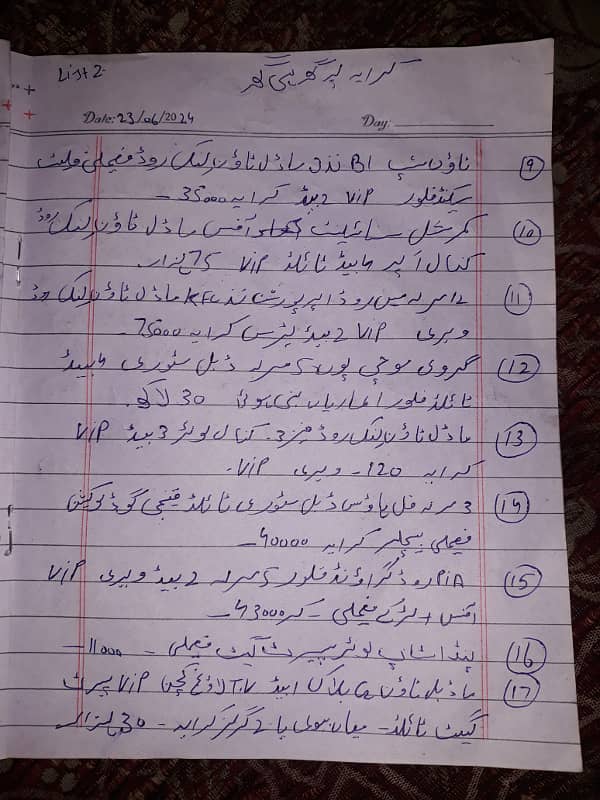 List 2
کرایہ پر گھر ہی گھر
Date: 23/06/2024 Day:
9 ٹاؤن شپ B1 نزد ماڈل ٹاؤن لنک روڈ فیملی فلیٹ
سیکنڈ فلور VIP 2 بیڈ کرایہ 35000
10 کمرشل سائیٹ آفس ماڈل ٹاؤن لنک روڈ
کنال اپر 4 بیڈ ٹائلڈ VIP 75 ہزار
11 12 مرلہ مین روڈ اپر پورشن نزد KFC ماڈل ٹاؤن لنک روڈ
ویری VIP 2 بیڈ ٹیرس کرایہ 75000
12 گروی موچی پورہ 5 مرلہ ڈبل سٹوری 4 بیڈ
ٹائلڈ فلور الماریاں بنی ہوئی 30 لاکھ
13 ماڈل ٹاؤن لنک روڈ فیز 3 کنال لوئر 3 بیڈ VIP
کرایہ 120 ویری VIP
14 3 مرلہ فل ہاؤس ڈبل سٹوری ٹائلڈ قینچی گوڈ لوکیشن
فیملی بیچلر کرایہ 40000
15 PIA روڈ گراؤنڈ فلور 5 مرلہ 2 بیڈ ویری VIP
آفس + لڑکے فیملی 43000
16 پنڈ سٹاپ لوئر سیپرٹ گیٹ فیملی 11000
17 ماڈل ٹاؤن Q بلاک 1 بیڈ T.V لاؤنج کچن VIP سیپرٹ
گیٹ ٹائلڈ میاں بیوی یا 2 گرلز کرایہ 30 ہزار